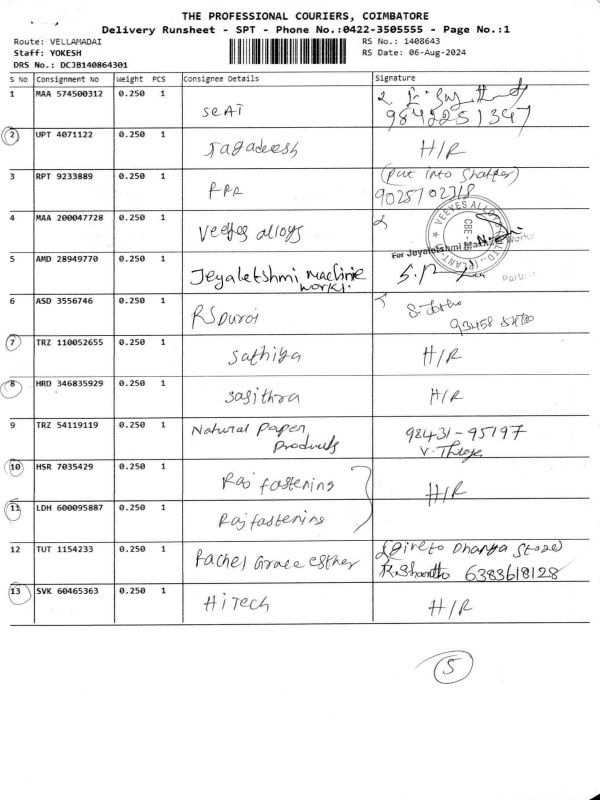 THE PROFESSIONAL COURIERS, COIMBATORE
Delivery Runsheet - SPT - Phone No.:0422-3505555 - Page No.:1
Route: VELLAMADAI
RS No.: 1408643
Staff: YOKESH
RS Date: 06-Aug-2024
DRS No.: DCJB140864301
S No Consignment No Weight PCS Consignee Details Signature
1 MAA 574500312 0.250 1 SEAT
9842251347
2 UPT 4071122 0.250 1 Jagadeesh H/R
3 RPT 9233889 0.250 1 (Put into Shatter)
9025702318
4 MAA 200047728 0.250 1 Veeyes alloys
VEEYES ALLOYS
CBE
For Jeyaletshmi Machine Works
5 AMD 28949770 0.250 1 Jeyaletshmi Machine
works.
Partner
6 ASD 3556746 0.250 1 RS Duroi
7 TRZ 110052655 1 0.250 Sathiya H/R
8 HRD 346835929 0.250 1 Sasithra H/R
9 TRZ 54119119 0.250 1 Natural Paper 98431-95197
Products
10 HSR 7035429 0.250 1 Raj fastening H/R
11 LDH 600095887 0.250 1 Raj fastening
12 TUT 1154233 0.250 1 Rachel Grace Esther (Give to Dhanya Store)
R. Shantho 6383618128
13 SVK 60465363 0.250 1 HiTech H/R
5